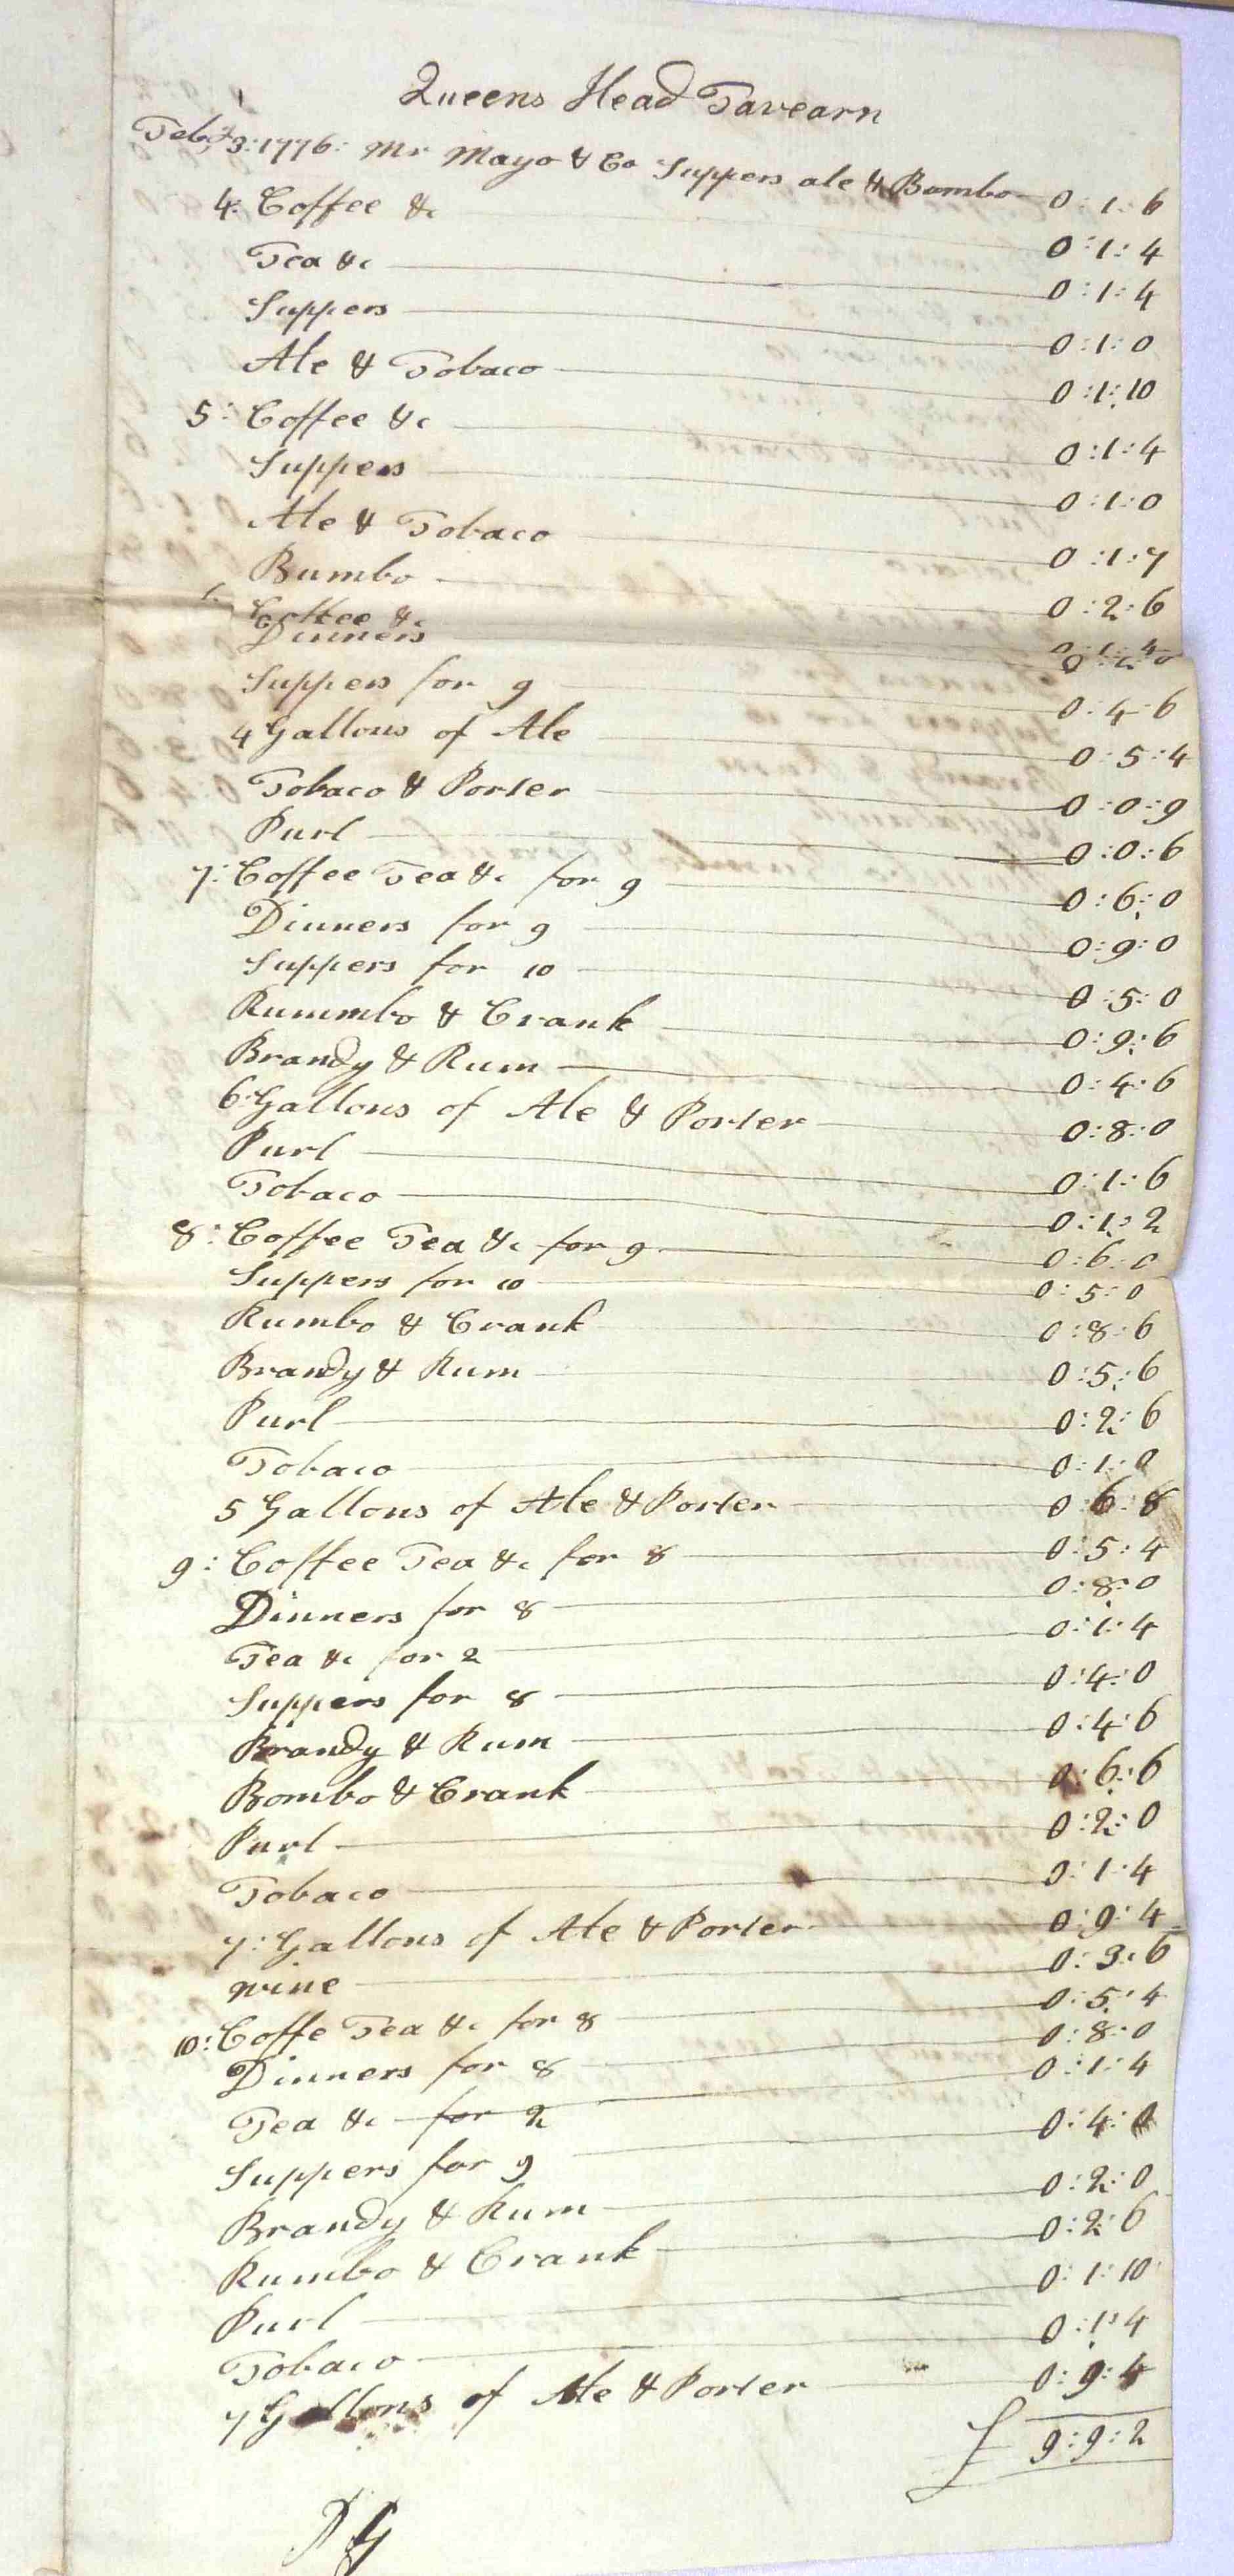 Queens Head Tavearn
Feby 3: 1776: Mr Mayo & Co Suppers ale & Bumbo 0:1:6
4: Coffee &c 0:1:4
Tea &c 0:1:4
Suppers 0:1:0
Ale & Tobaco 0:1:10
5: Coffee &c 0:1:4
Suppers 0:1:0
Ale & Tobaco 0:1:7
Bumbo 0:2:6
Coffee &c 0:1:4
Dinners
Suppers for 9 0:4:6
4 Gallons of Ale 0:5:4
Tobaco & Porter 0:0:9
Purl 0:0:6
7: Coffee Tea &c for 9 0:6:0
Dinners for 9 0:9:0
Suppers for 10 0:5:0
Rummbo & Crank 0:9:6
Brandy & Rum 0:4:6
6 Gallons of Ale & Porter 0:8:0
Purl 0:1:6
Tobaco 0:1:2
8: Coffee Tea &c for 9 0:6:0
Suppers for 10 0:5:0
Rumbo & Crank 0:8:6
Brandy & Rum 0:5:6
Purl 0:2:6
Tobaco 0:1:0
5 Gallons of Ale & Porter 0:6:8
9: Coffee Tea &c for 8 0:5:4
Dinners for 8 0:8:0
Tea &c for 2 0:1:4
Suppers for 8 0:4:0
Brandy & Rum 0:4:6
Bombo & Crank 0:6:6
Purl 0:2:0
Tobaco 0:1:4
7: Gallons of Ale & Porter 0:9:4
wine 0:3:6
10: Coffe Tea &c for 8 0:5:4
Dinners for 8 0:8:0
Tea &c for 2 0:1:4
Suppers for 9 0:4:0
Brandy & Rum 0:2:0
Rumbo & Crank 0:2:6
Purl 0:1:10
Tobaco 0:1:4
7 Gallons of Ale & Porter 0:9:4
£ 9:9:2